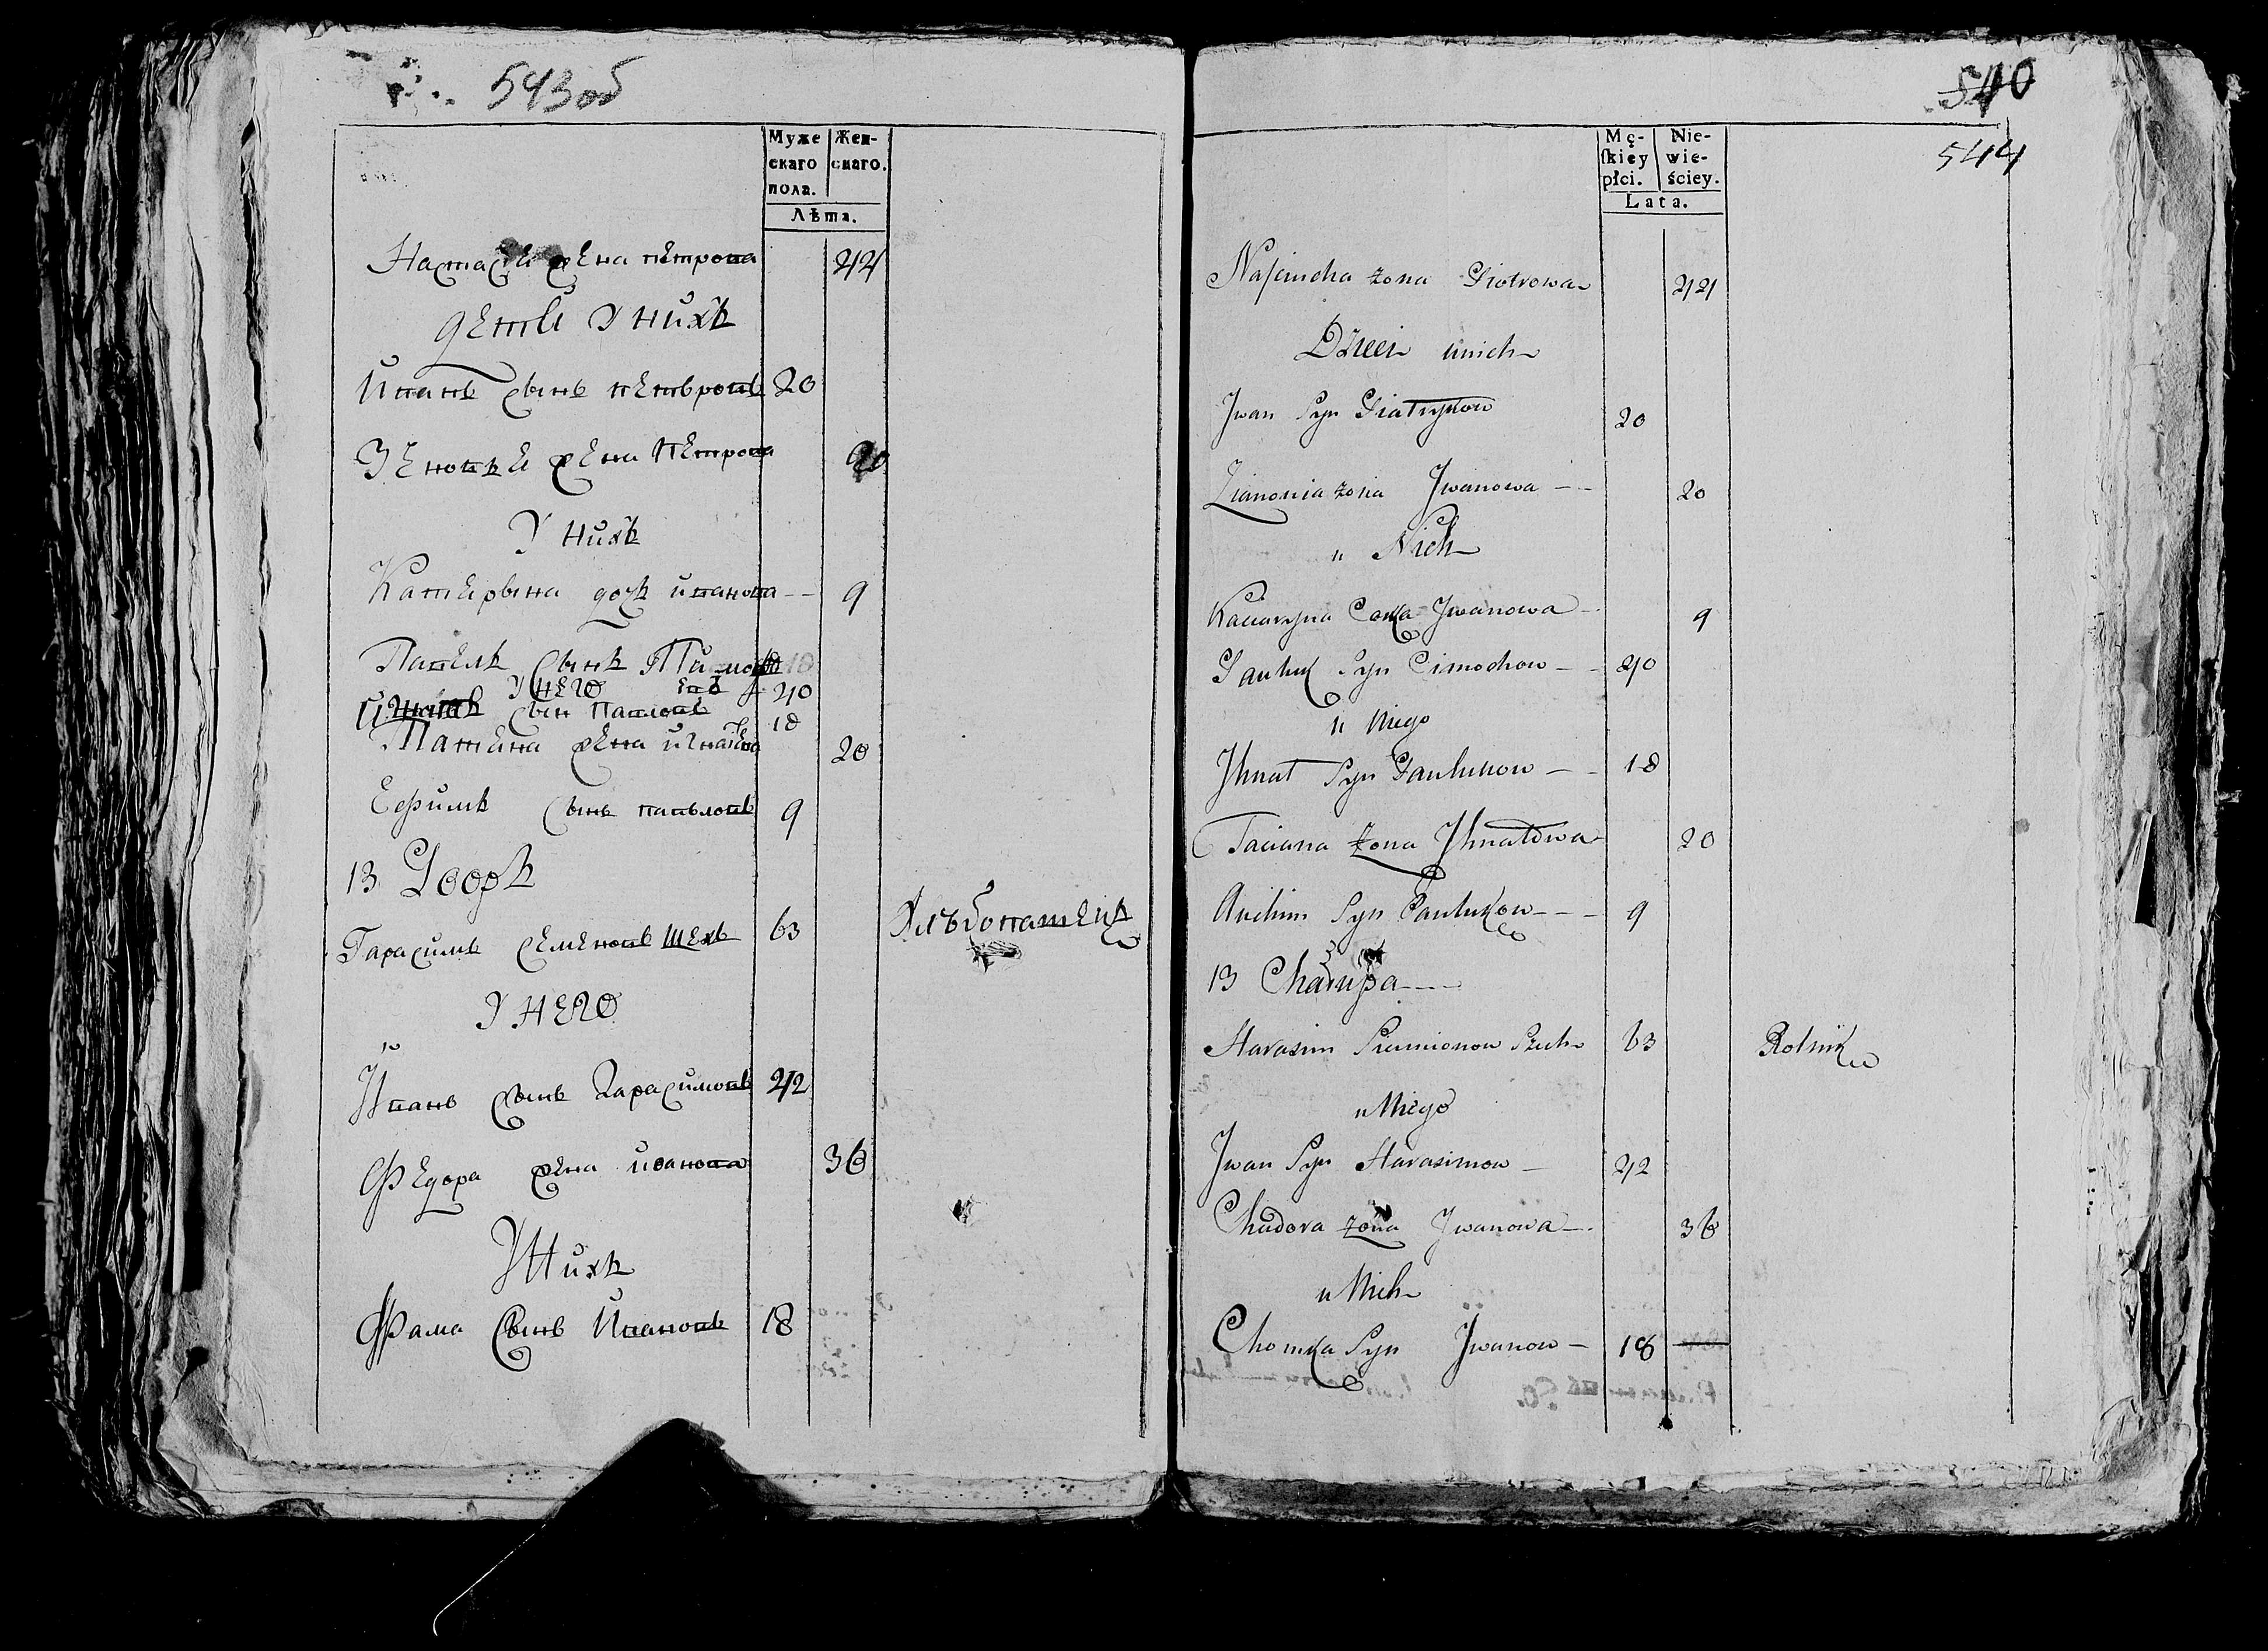 543 об
Муже Жен-
скаго скаго.
пола.
Лѣта.
Настася жена петрова 44
дети У нихъ
Иванъ сынъ петвровъ 20
Зеновья жена Петрова 20
У нихъ
Катерына дочъ иванова -- 9
Павелъ сынъ Тимо
У него 40
Игнатъ сын Павловъ 18
Татяна жена игнатева 20
Ефимъ сынъ павьловъ 9
13 Дворъ
Гарасимъ семеновъ шехъ 63 Хлѣбопашецъ
У него
Иванъ сынъ Гарасимовъ 42
Федора жена иванова 36
У Нихъ
Фама сынъ Ивановъ 18
540
544
Mę- Nie-
skiey wie-
płci. ściey.
Lata.
Naściucha żona Piotrowa 44
Dzieci u nich
Jwan Syn Piatrykow 20
Zianonia żona Jwanowa -- 20
u Nich
Kaciaryna Corka Jwanowa - 9
Pauluk Syn Cimochow - - 40
u Niego
Jhnat Syn Paulukow - - 18
Taciana żona Jhnatowa 20
Auchim Syn Paulukow - - - 9
13 Chałupa ----
Harasim Siemionow Szech 63 Rolnik
u Niego
Jwan Syn Harasimow - 42
Chudora żona Jwanowa -. 36
u Nich
Chomka Syn Jwanow - 18